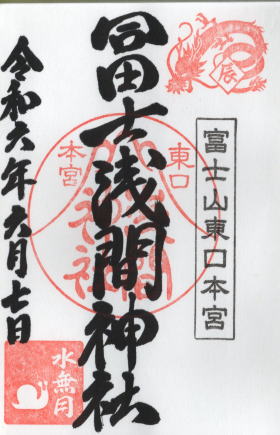 辰
富士山東口本宮
冨士浅間神社
東口
本宮
令和六年六月七日
水無月